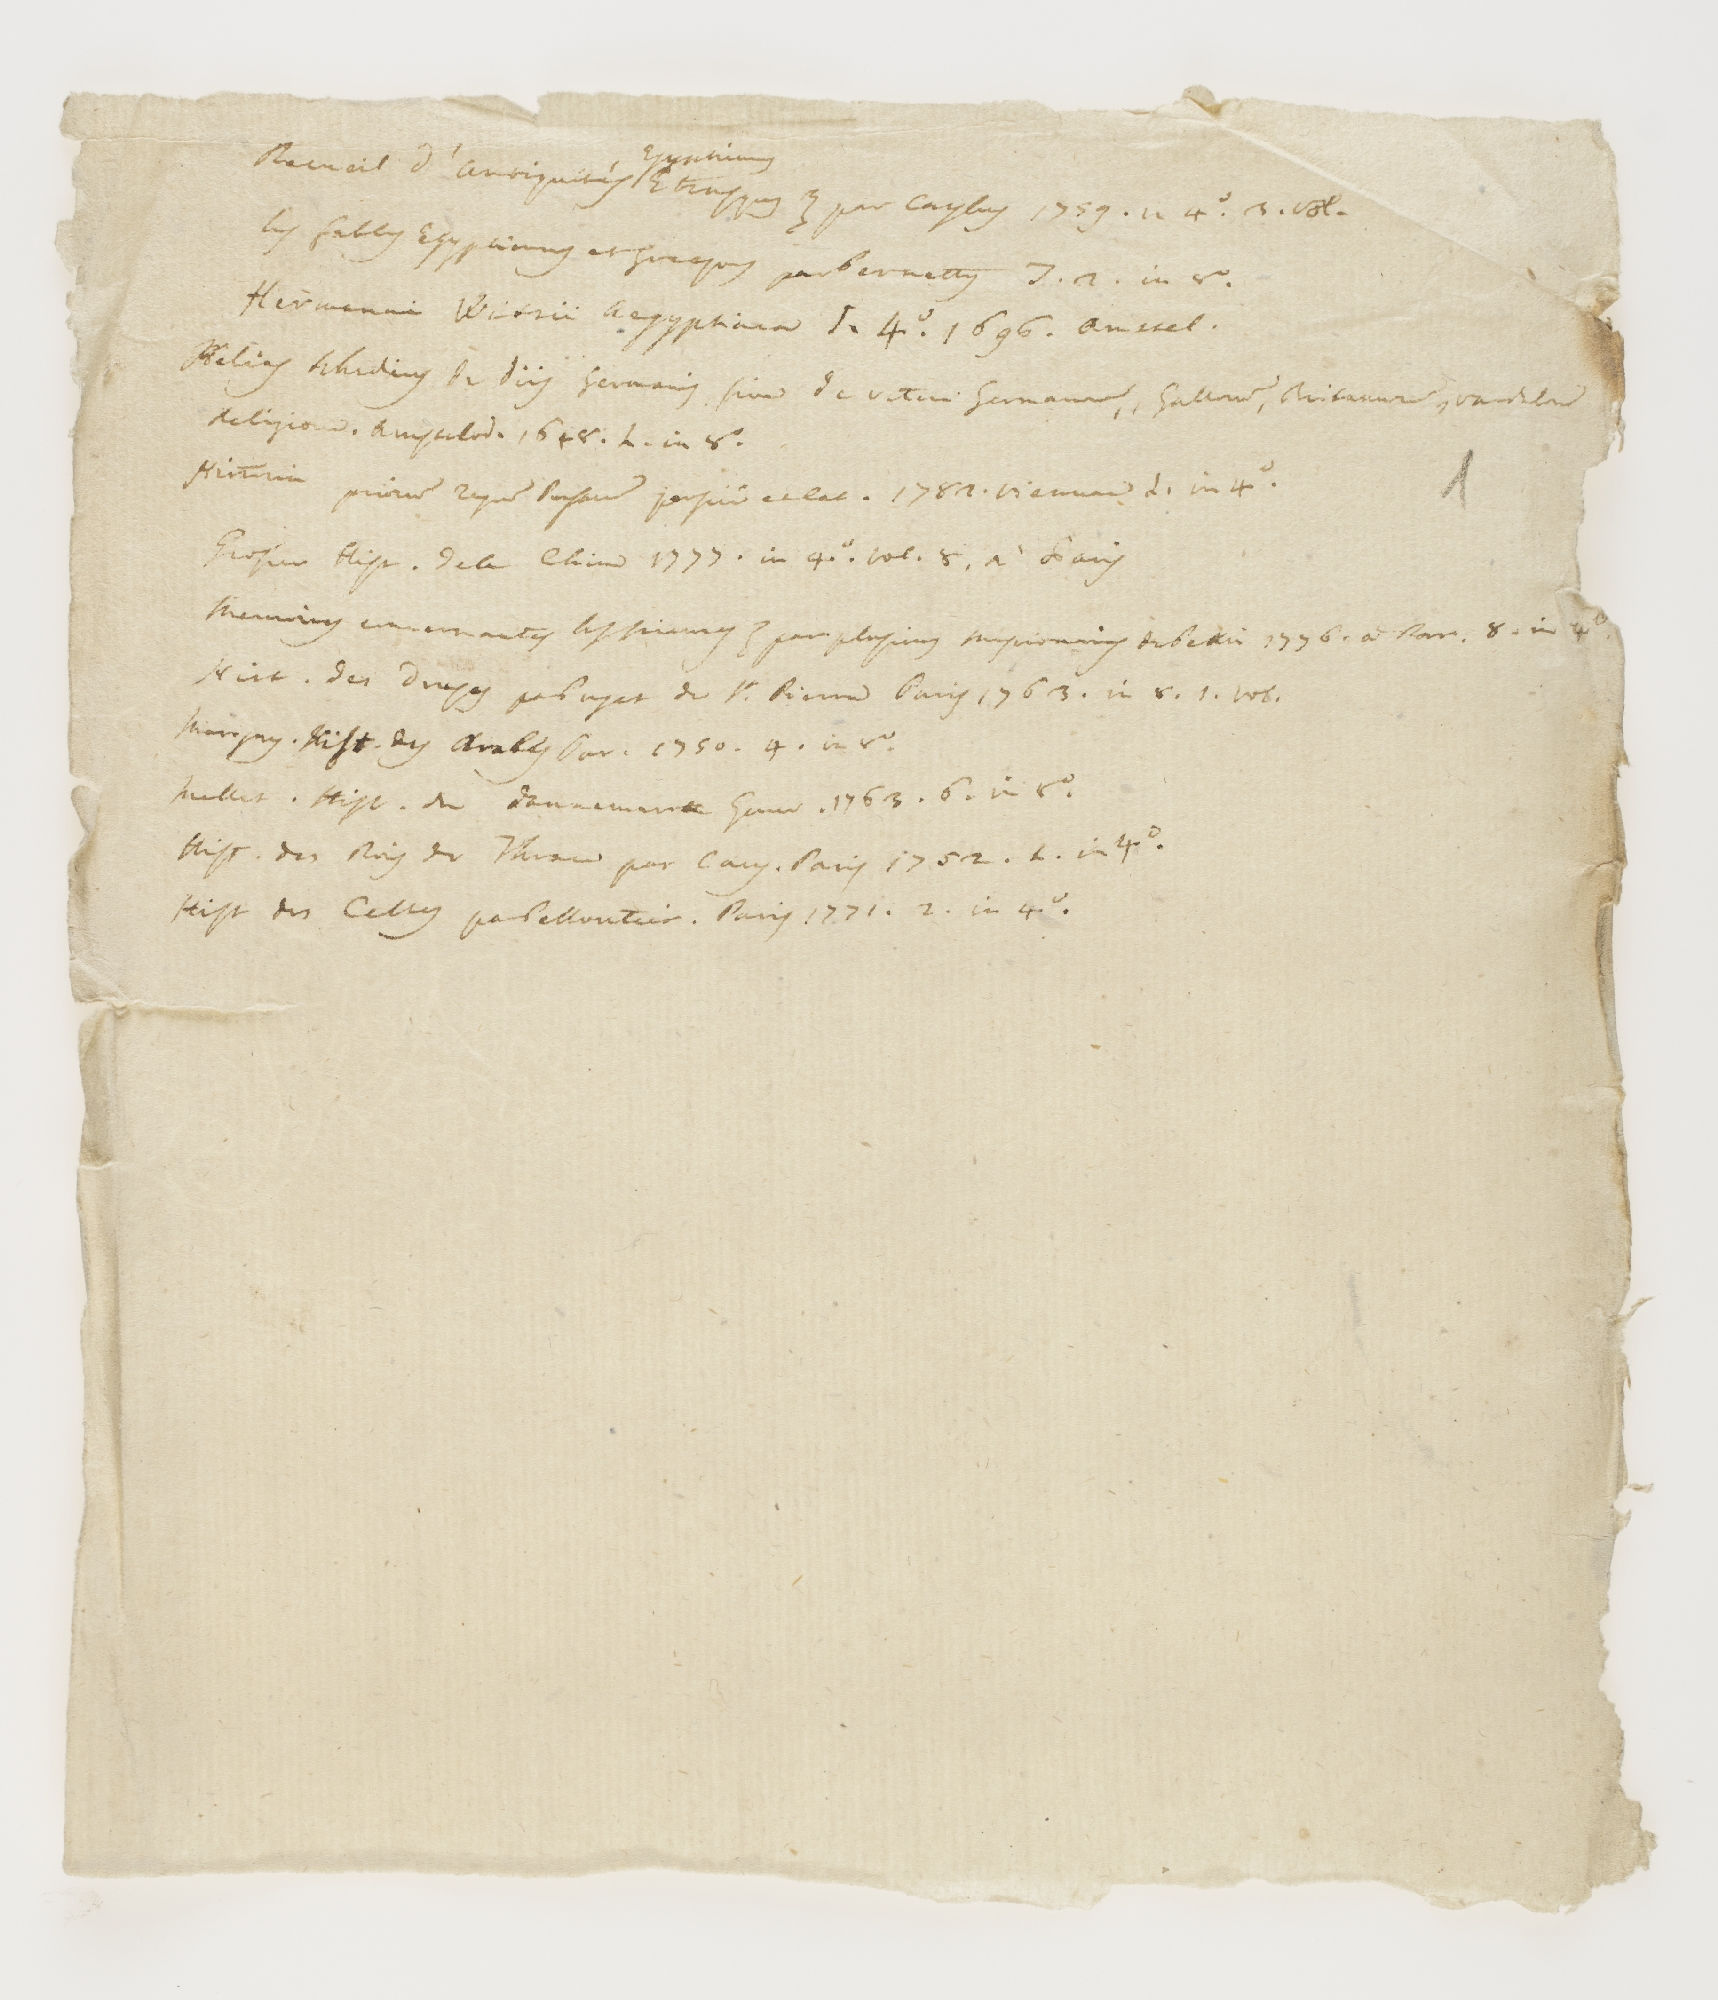 Recueil d'antiquités Egyptiens Etrusques & par Caylus 1759. in 4º. 3. vol.
les fables Egyptiennes et Grecques par Pernetty T. 2. in 8º.
Hermanni Witsii Aegyptiaca I. 4º. 1696. Amstel.
Helias Schedius de diis Germanis sive de veteri Germanorū, Gallorū, Britannorū, Vandalorū
Religione. Amstelod. 1648. L. in 8º.
Historia priorū regū Persarū persicè et lat. 1782. Viennae L. in 4º.
Grosier Hist. de la Chine 1777. in 4º. vol. 8. à Paris
Memoires concernantes les & par plusieurs missionaires de Pekin 1776. à Par. 8. in 4º.
Hist. des Druses par Puget de St. Pierre Paris 1763. in 8. 1. vol.
Marigny. Hist. des Arabes Par. 1750. 4. in 8º.
Mallet. Hist. de Dannemarc Genev. 1763. 6. in 8º.
Hist. des Rois de Thrace par Cary. Paris 1752. L. in 4º.
Hist des Celtes par Pelloutier. Paris 1771. 2. in 4º.
1